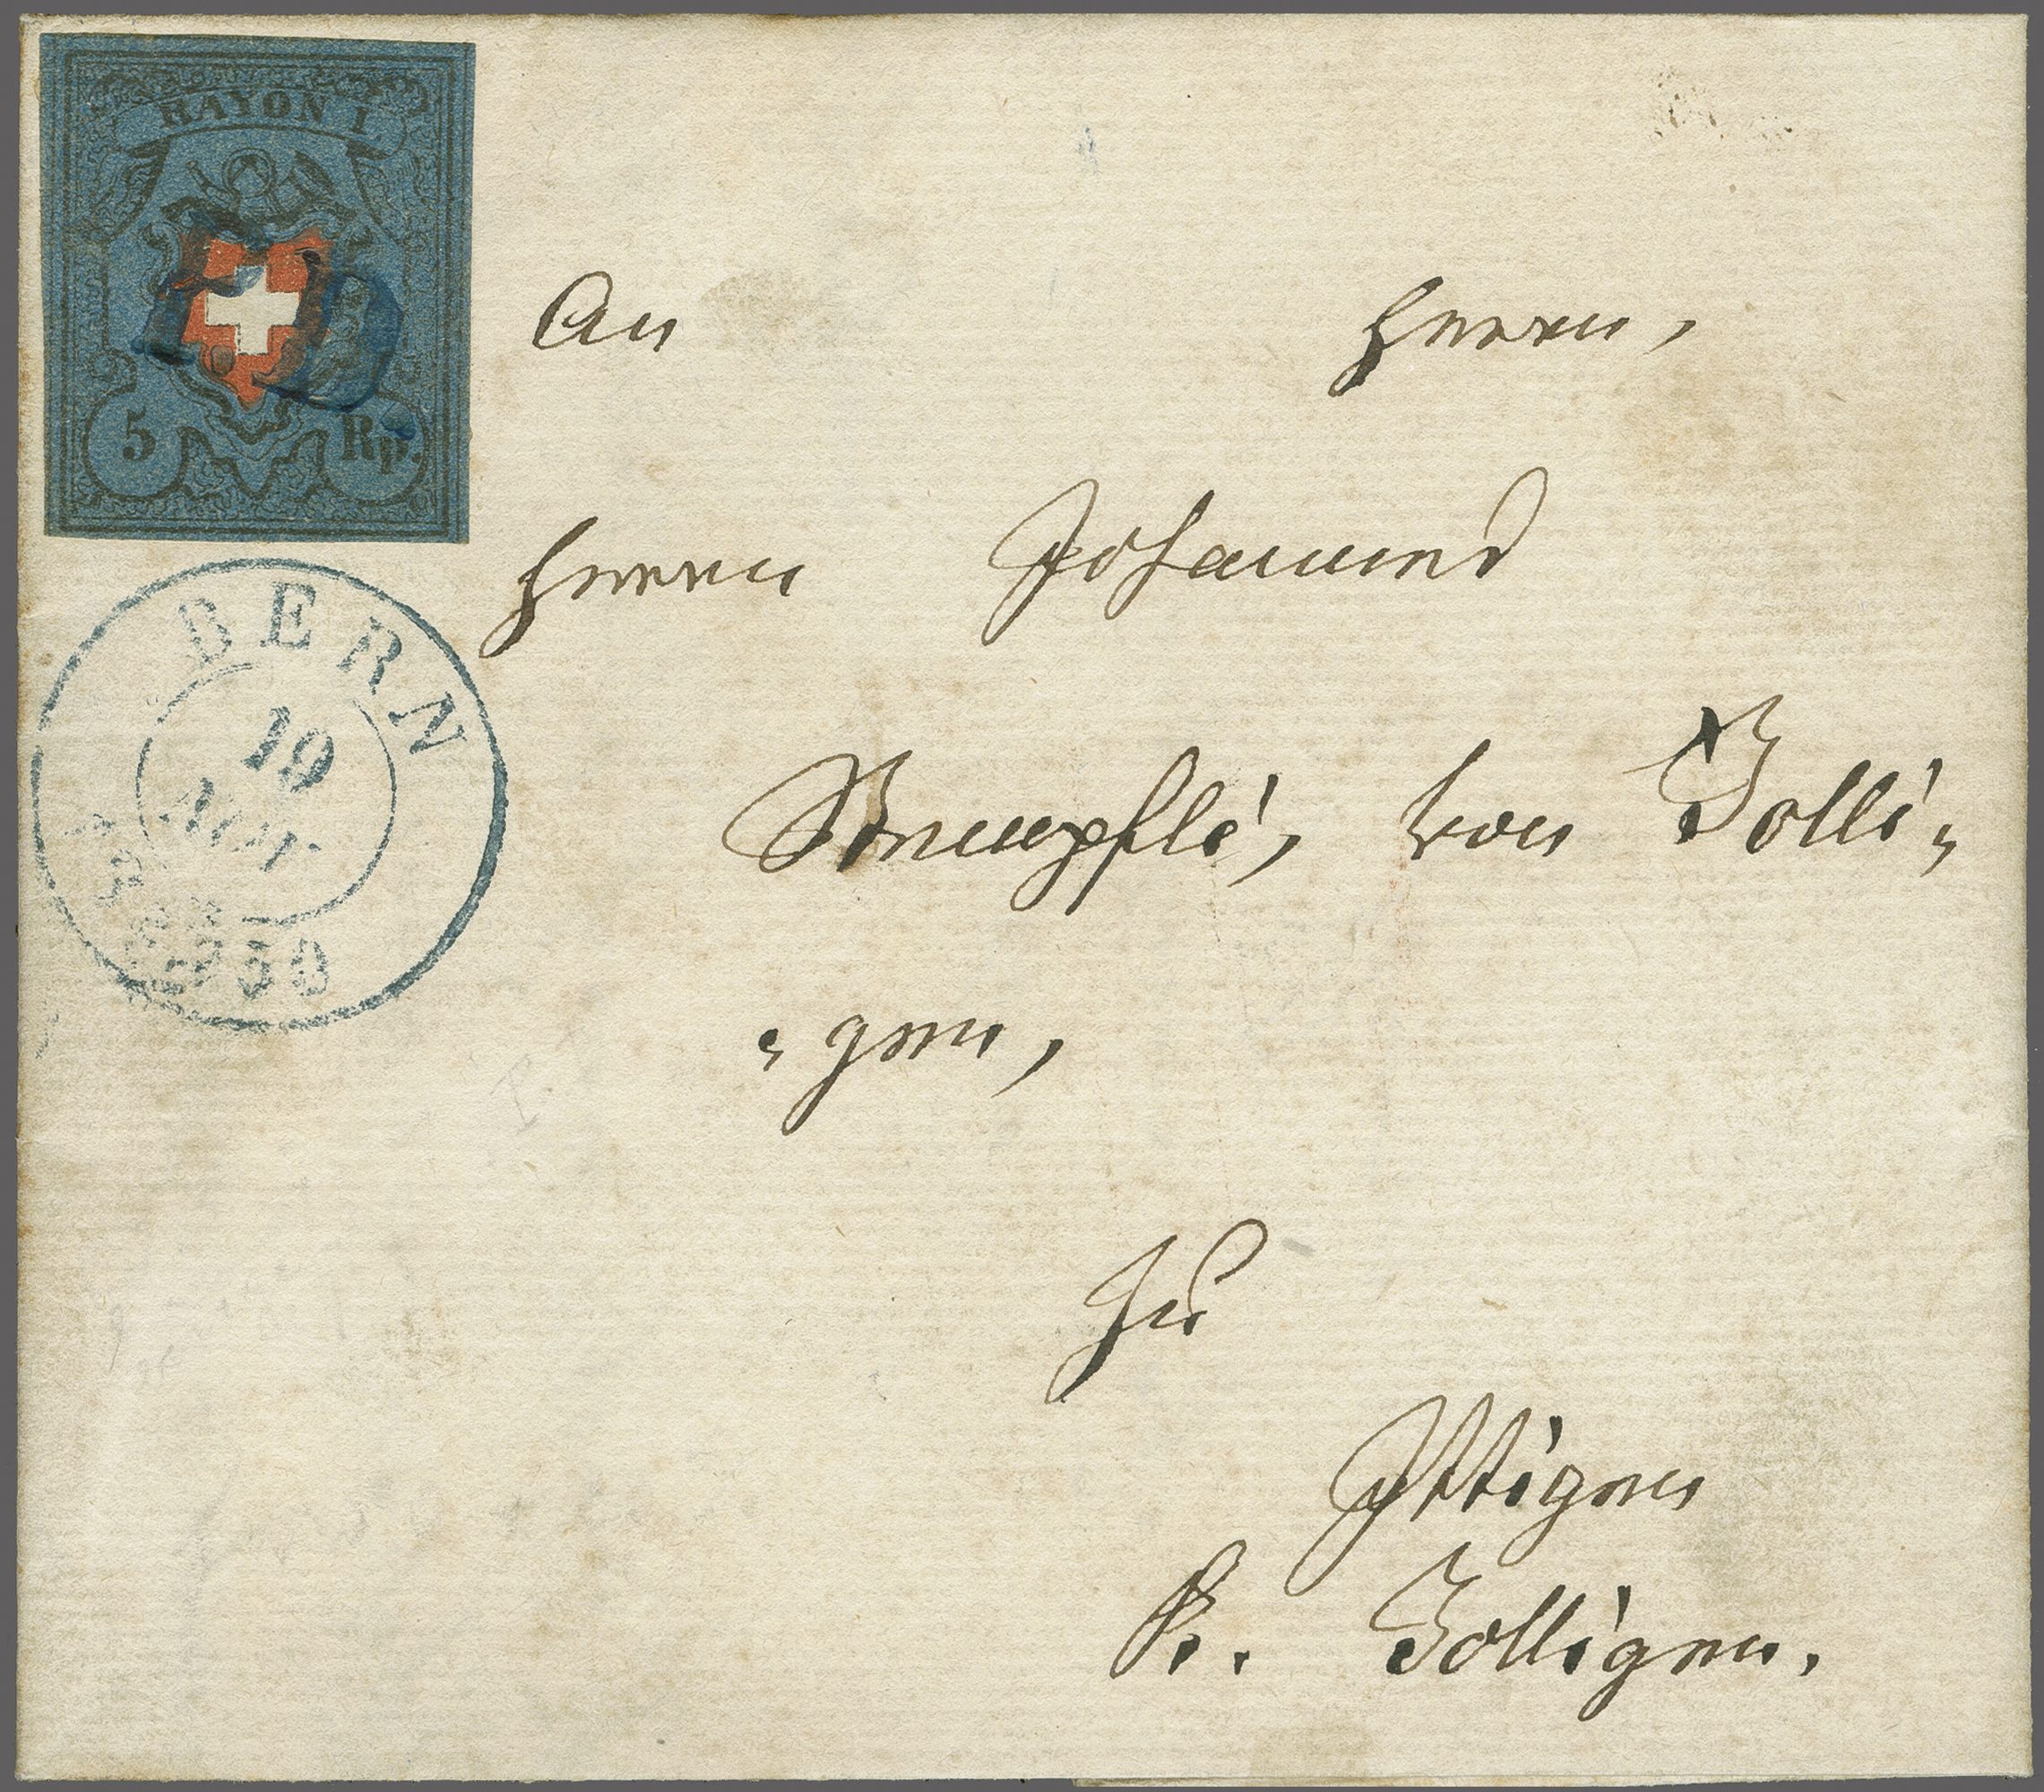 RAYON I.
P.D.
5 Rp.
BERN
19
Nov
50
An Herrn,
Herrn Johannes
Stempfli, von Bolli-
-gen,
zu
Ittigen
K. Bolligen.